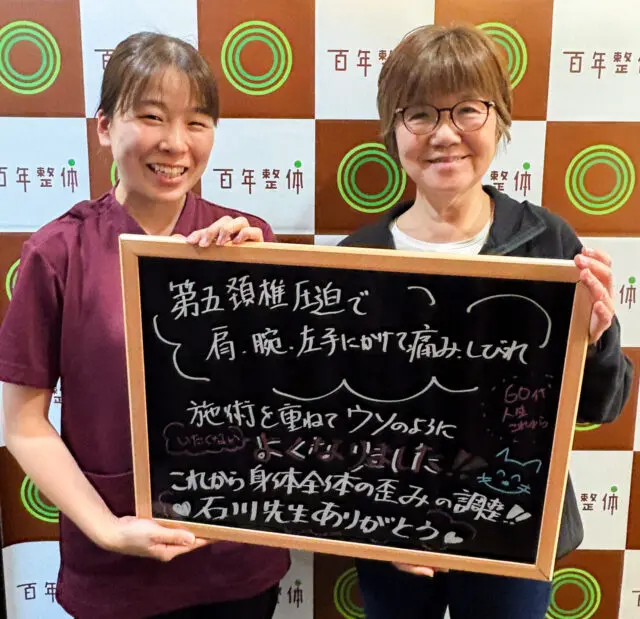 百年整体
百年整体
百年整体
百年整体
百年整体
百年整
整体
体
整体
百年整体
百年
第五頚椎圧迫で
肩、腕、左手にかけて痛み、しびれ
60代
人生
これから
施術を重ねてウソのように
いたくない
よくなりました!!
これから身体全体の歪みの調整!!
♥石川先生ありがとう♥